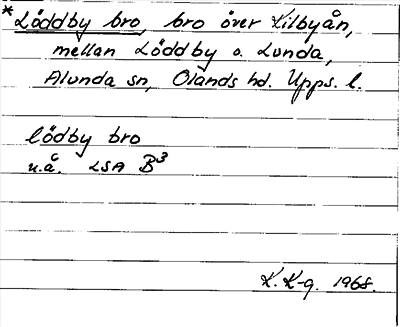 *Löddby bro, bro över Lilbyån,
mellan Löddby o. Lunda,
Alunda sn, Olands hd. Upps. l.
lödby bro
u.å. LSA B3
K. K-g. 1968.